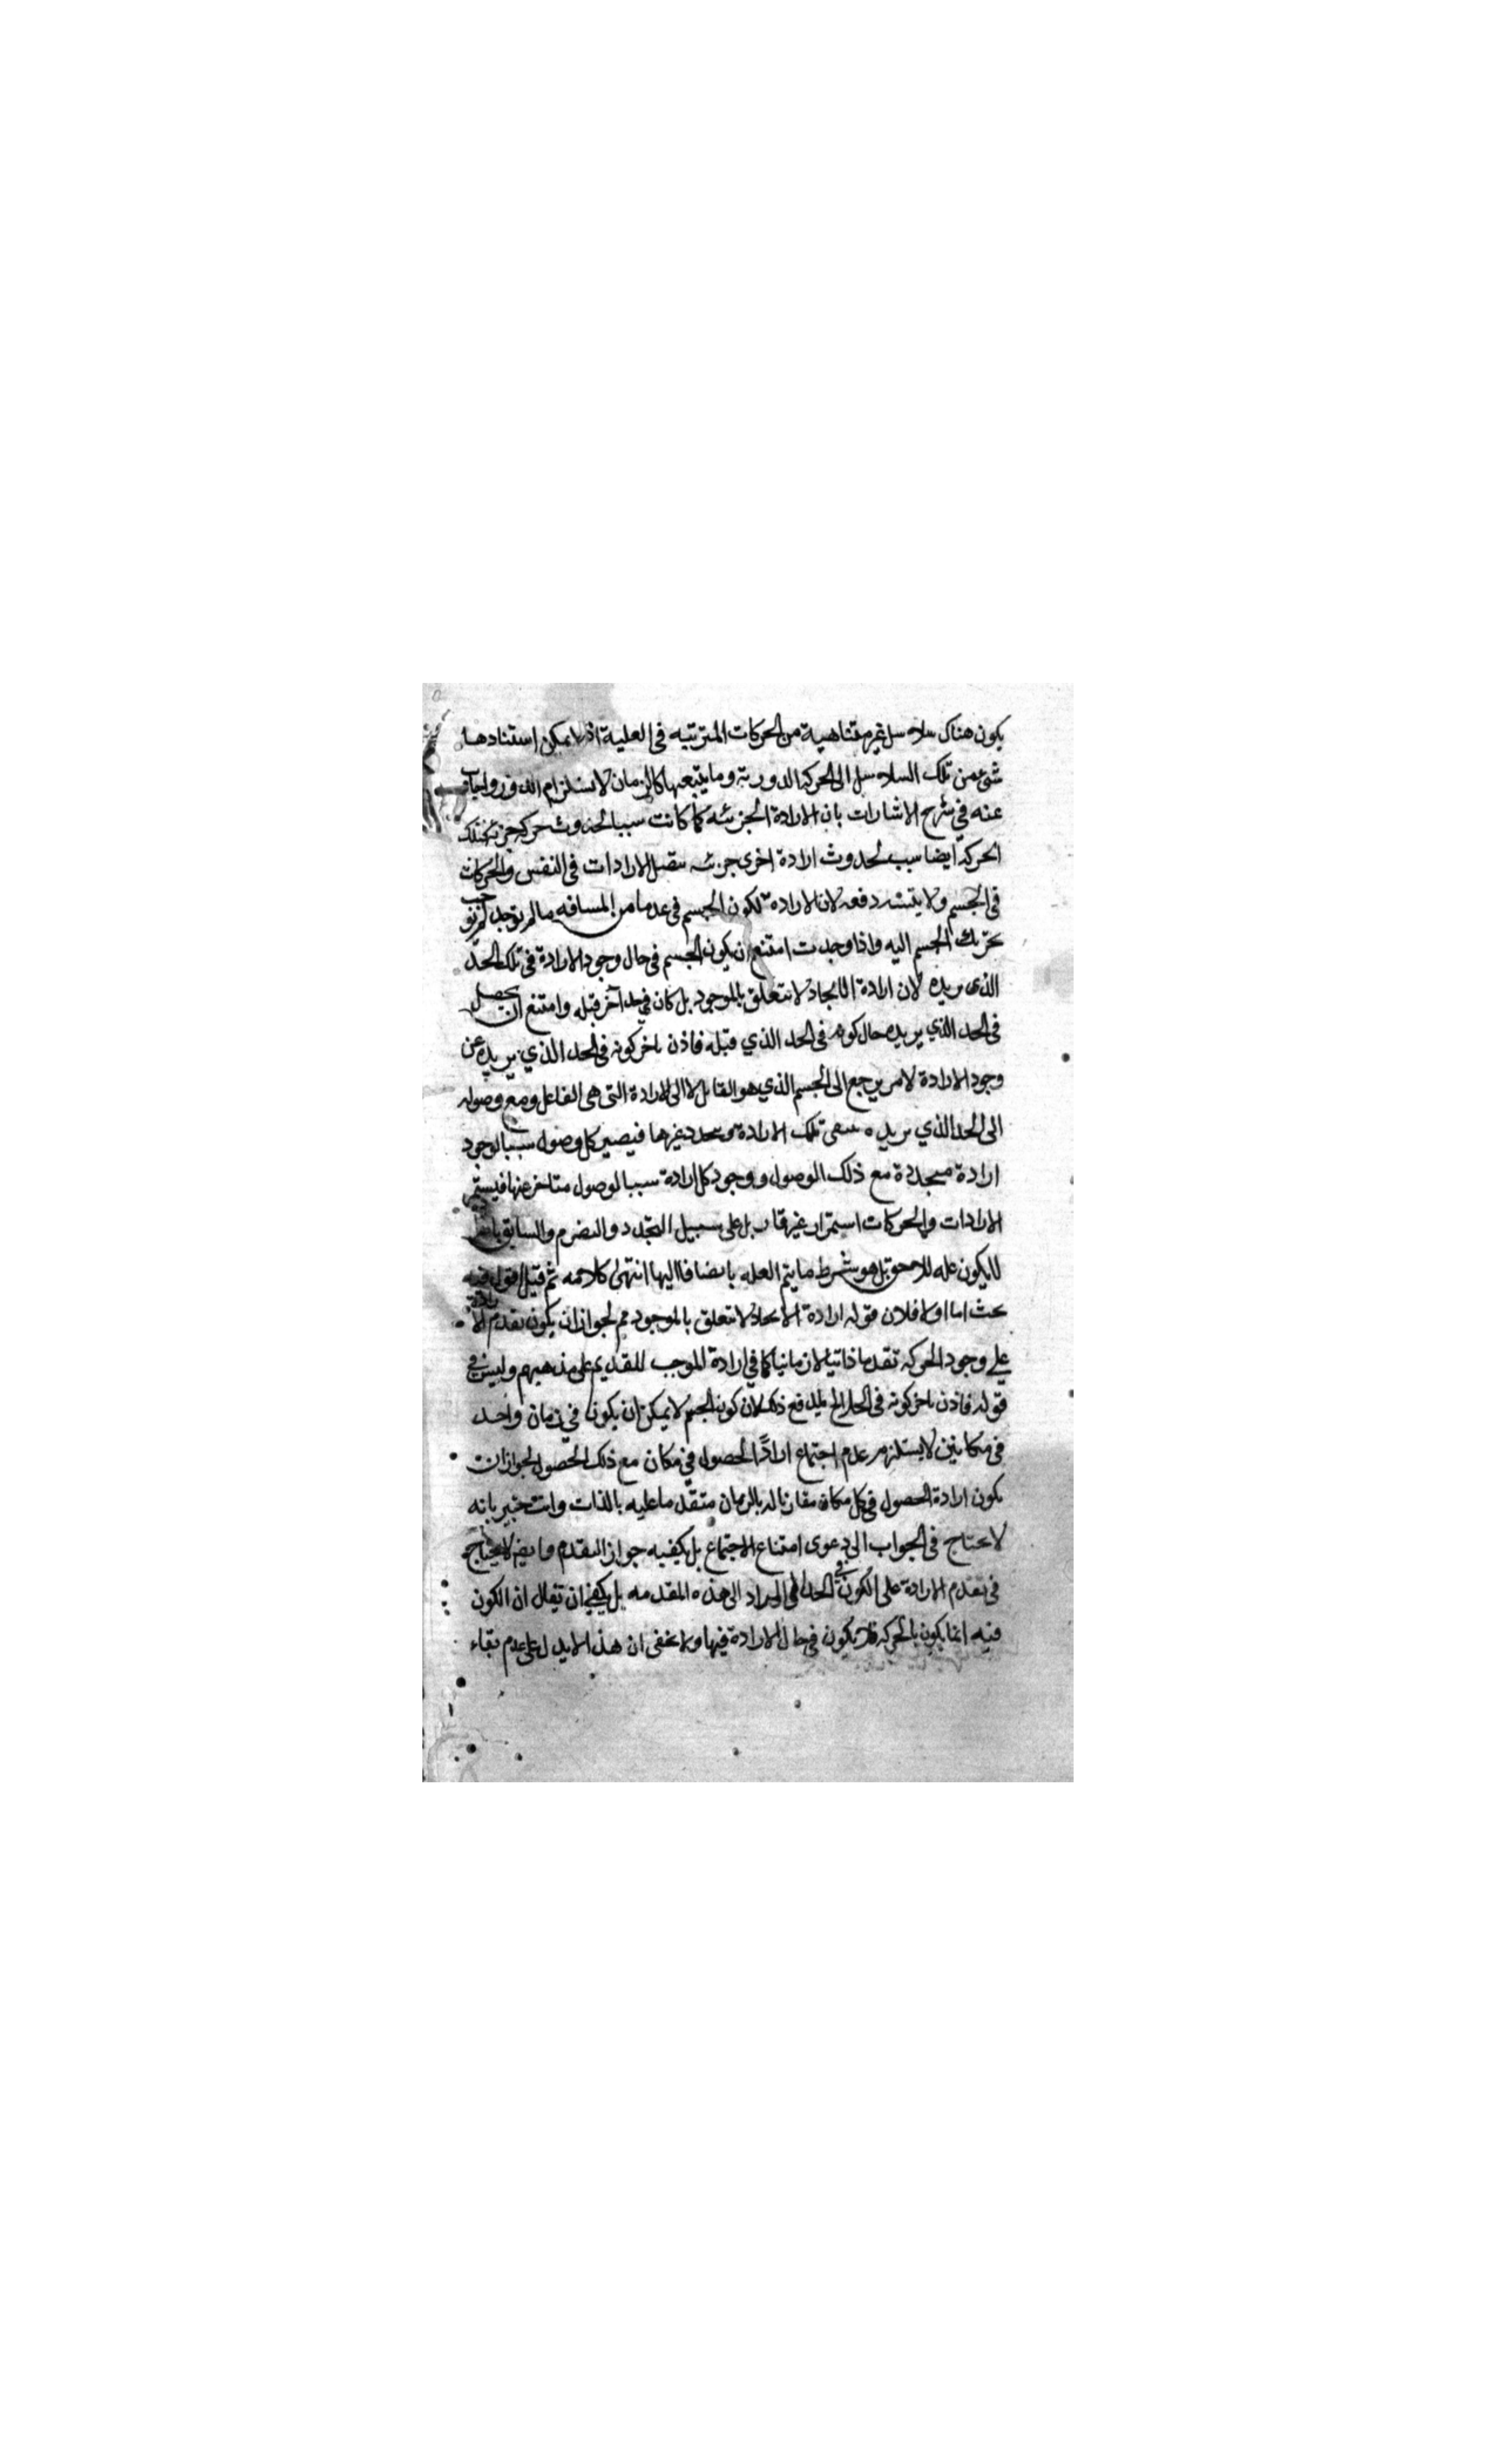 يكون هناك سلاسل غير متناهية من الحركات المترتبه فى العلية اذ لا يمكن استنادها
شئ من تلك السلاسل الى الحركة الدورية وما يتبعها كالزمان لاستلزام الدور واجاب
عنه في شرح الاشارات بان الارادة الجزئيه كما كانت سببا لحدوث حركه جزئيه تلك
الحركة ايضا سبب لحدوث ارادة اخرى جزئيه يتصل الارادات فى النفس والحركات
فى الجسم ولا دفعه لان الارادة لكون الجسم فى حد ما من المسافه ما لم توجد لم يجب
تحريك الجسم اليه واذا وجدت امتنع ان يكون الجسم فى حال وجود الارادة فى تلك الحد
الذى يريده لان ارادة الايجاد لا تتعلق بالموجود بل كان في حد آخر قبله وامتنع ان يحصل
فى الحد الذي يريده حال كونه فى الحد الذي قبله فاذن تاخر كونه فى الحد الذي يريده عن
وجود الارادة لامر يرجع الى الجسم الذي هو القابل لا الى الارادة التى هى الفاعل ومع وصوله
الى الحد الذي يريده تلك الارادة ويتجدد غيرها فيصير كل وصول سببا لوجود
ارادة متجددة مع ذلك الوصول ووجود كل ارادة سببا لوصول متاخر عنها فيستمر
الارادات والحركات استمرار غير قار بل على سبيل التجدد والتصرم والسابق
لا يكون عله للاحق بل هو شرط ما يتم العله بانضيافا اليها انتهى كلامه ثم قيل اقول فيه
بحث اما اولا فلان قوله ارادة الايجاد لا تتعلق بالموجود مم لجواز ان يكون تقدم الارادة
على وجود الحركه تقدما ذاتيا لا زمانيا كما في ارادة الموجب للقديم على مذهبهم وليس في
قوله فاذن تاخر كونه فى الحد الخ ما يدفع ذلك لان كون الجسم لا يمكن ان يكون في زمان واحد
فى مكانين لا يستلزم عدم اجتماع ارادة الحصول في مكان مع ذلك الحصول لجواز ان
يكون ارادة الحصول في كل مكان مقارنا له بالزمان متقدما عليه بالذات وانت خبير بانه
لا يحتاج فى الجواب الى دعوى امتناع الاجتماع بل يكفيه جواز التقدم وايضا لا يحتاج
فى تقدم الارادة على الكون في الحد المراد الى هذه المقدمه بل يكفي ان يقال ان الكون
فيه انما يكون بالحركه فلا يكون في حال الارادة فيها ولا يخفى ان هذا لا يدل على عدم بقاء